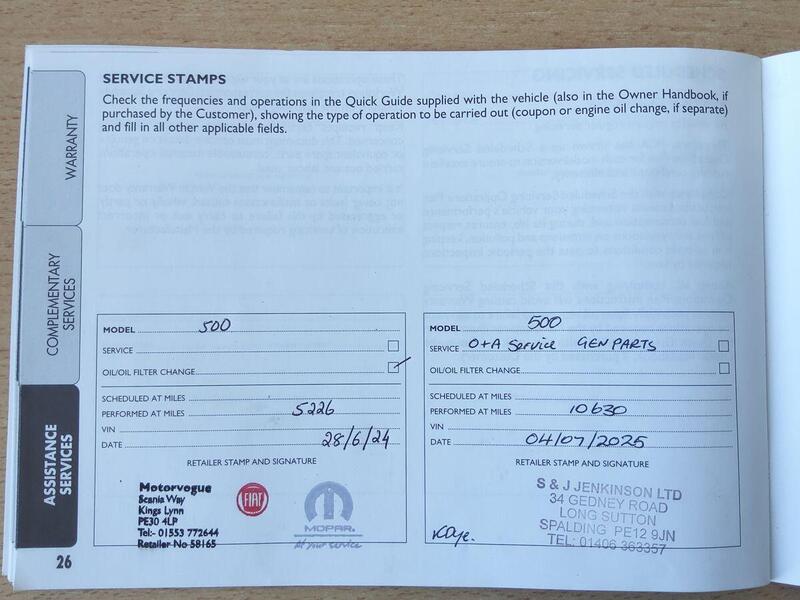 SERVICE STAMPS
Check the frequencies and operations in the Quick Guide supplied with the vehicle (also in the Owner Handbook, if
purchased by the Customer), showing the type of operation to be carried out (coupon or engine oil change, if separate)
and fill in all other applicable fields.
WARRANTY
COMPLEMENTARY
SERVICES
ASSISTANCE
SERVICES
MODEL 500
SERVICE
OIL/OIL FILTER CHANGE
SCHEDULED AT MILES
PERFORMED AT MILES 5226
VIN
DATE 28/6/24
RETAILER STAMP AND SIGNATURE
Motorvogue
Scania Way
Kings Lynn
PE30 4LP
Tel:- 01553 772644
Retailer No 58165
FIAT
MOPAR
At your service
MODEL 500
SERVICE O+A Service GEN PARTS
OIL/OIL FILTER CHANGE
SCHEDULED AT MILES
PERFORMED AT MILES 10630
VIN
DATE 04/07/2025
RETAILER STAMP AND SIGNATURE
S & J JENKINSON LTD
34 GEDNEY ROAD
LONG SUTTON
SPALDING PE12 9JN
TEL: 01406 363357
26